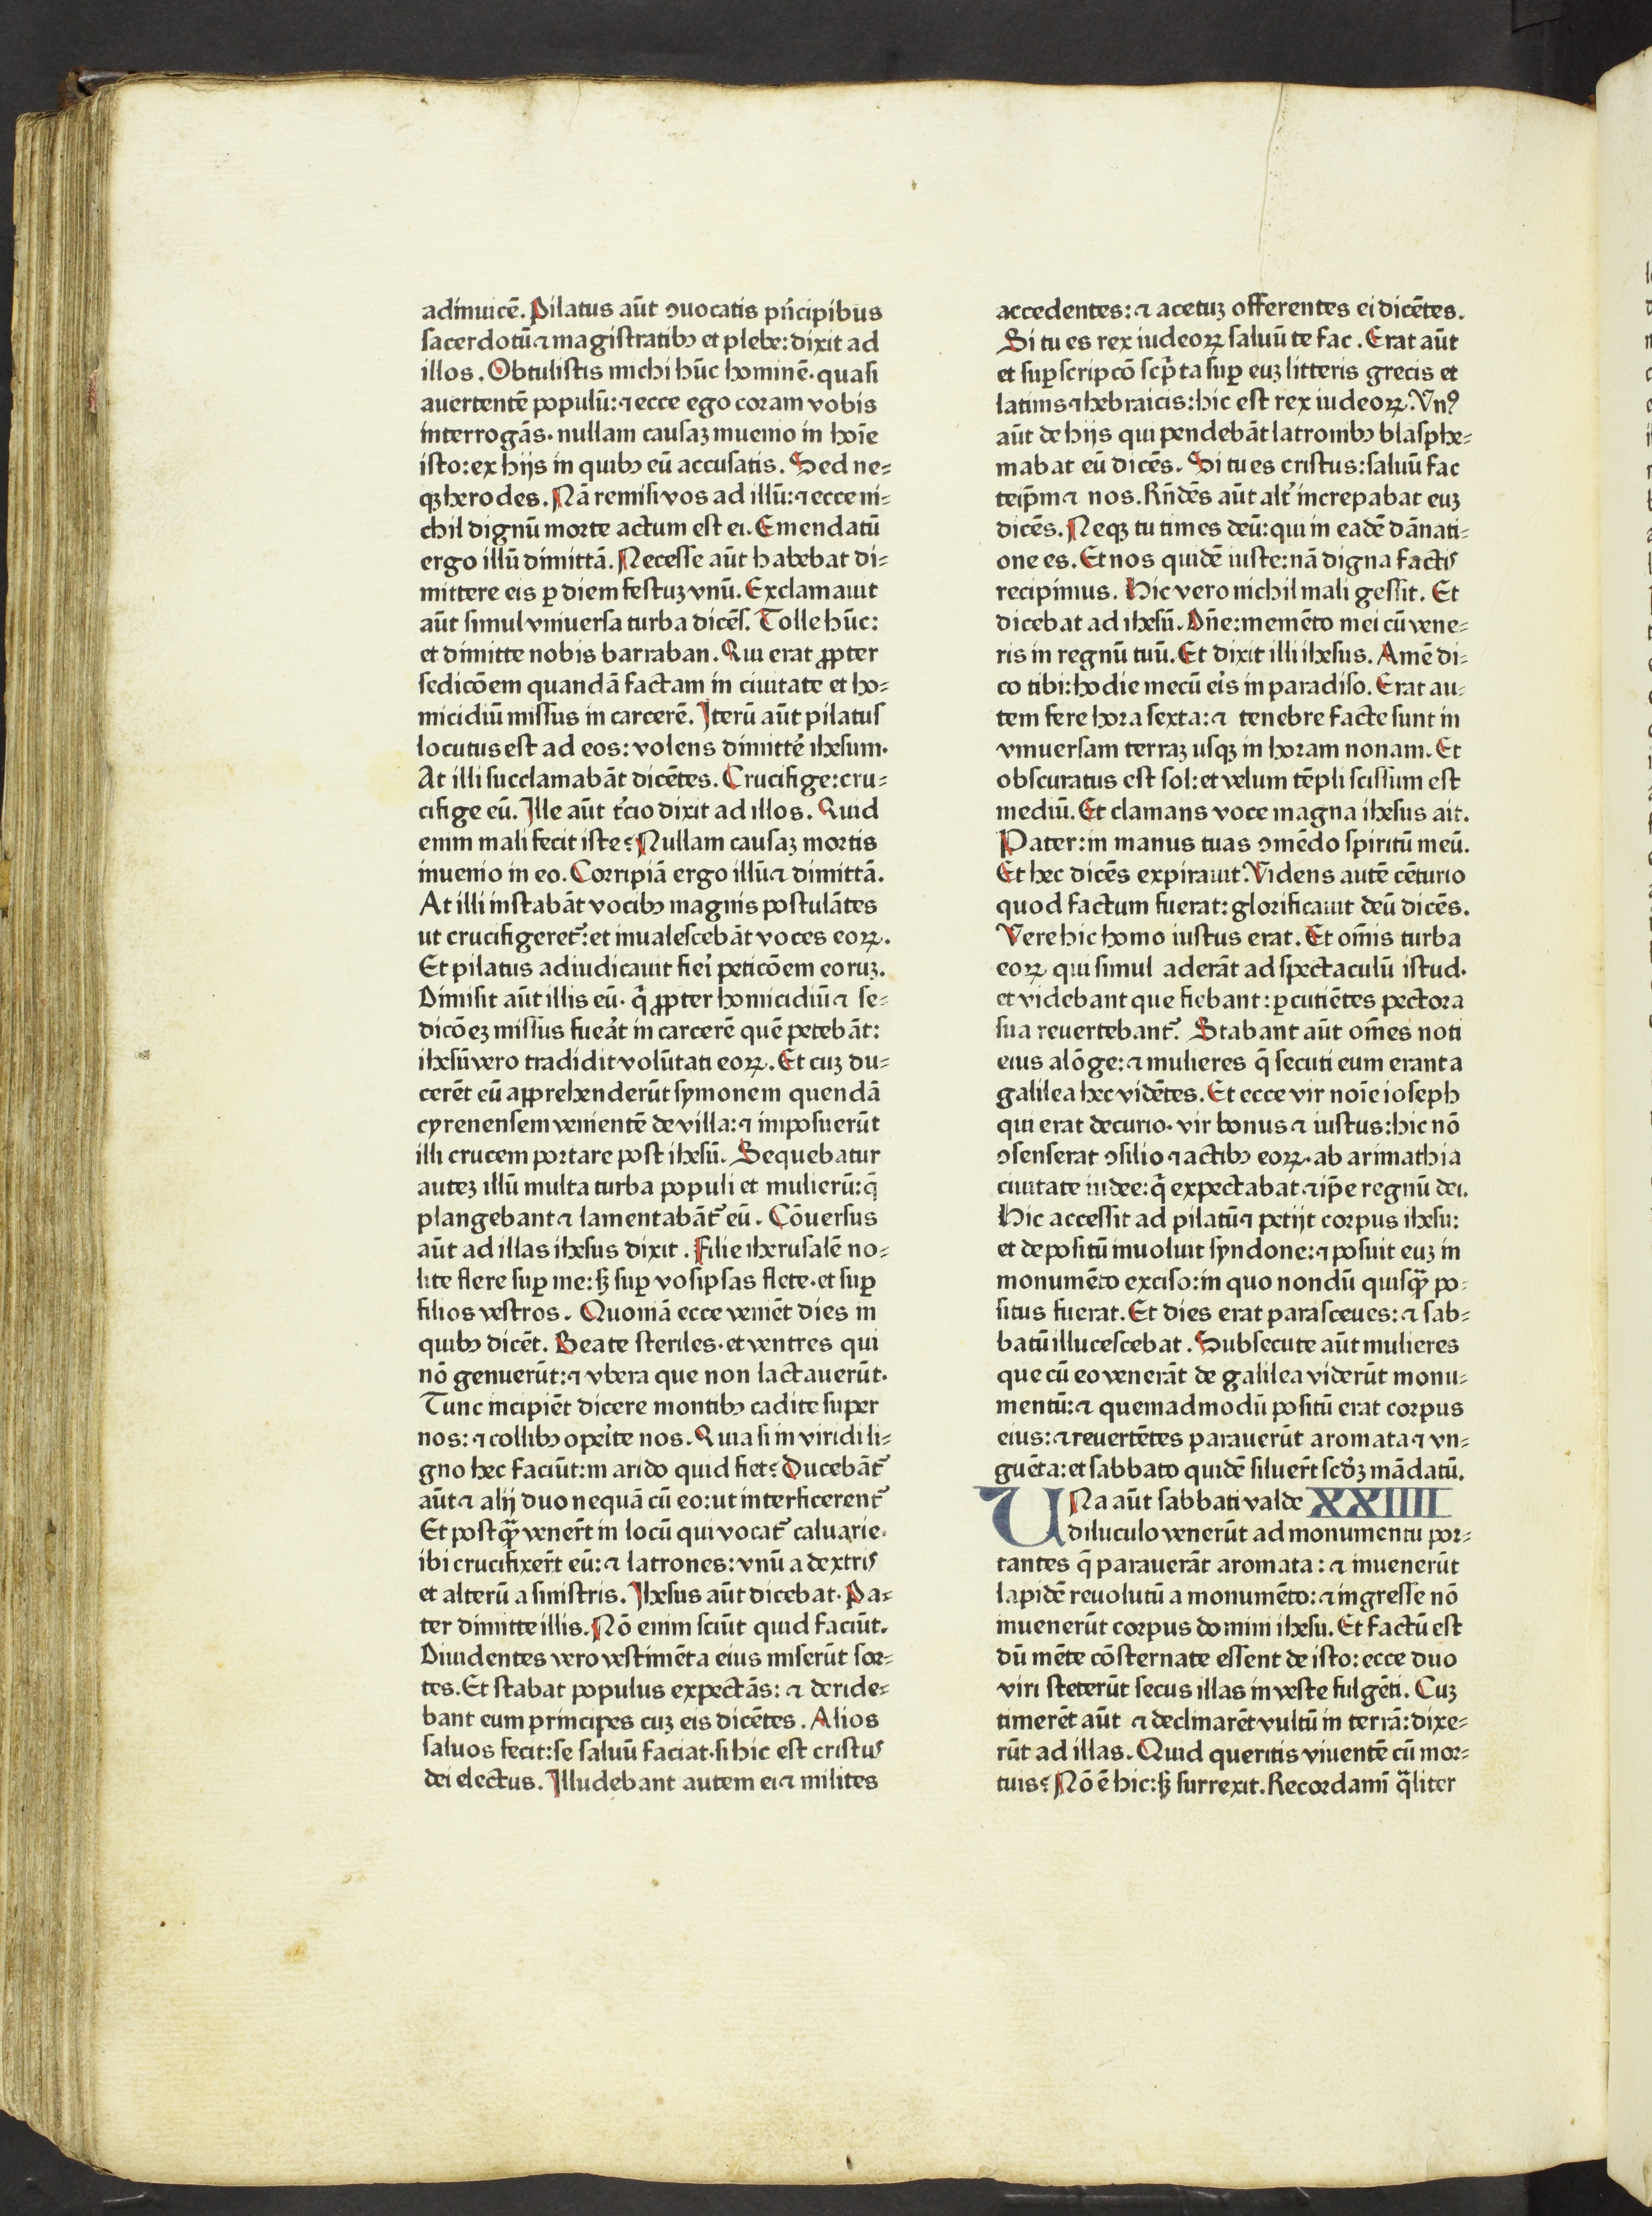 adinuicē. Pilatus aūt ↄuocatis pⁿcipibus
sacerdotū ⁊ magistratibꝰ et plebe: dixit ad
illos. Obtulistis michi hūc hominē· quasi
auertentē populū: ⁊ ecce ego coram vobis
interrogās· nullam causaꝫ inuenio in hoīe
isto: ex hijs in quibꝰ eū accusatis. Sed ne=
qꝫ herodes. Nā remisi vos ad illū: ⁊ ecce ni=
chil dignū morte actum est ei. Emendatū
ergo illū dimittā. Necesse aūt habebat di=
mittere eis ꝑ diem festuꝫ vnū. Exclamauit
aūt simul vniuersa turba dicēs. Tolle hūc:
et dimitte nobis barraban. Qui erat ꝓpter
sedicōem quandā factam in ciuitate et ho=
micidiū missus in carcerē. Iterū aūt pilatus
locutus est ad eos: volens dimittẽ ihesum.
At illi succlamabāt dicētes. Crucifige: cru=
cifige eū. Ille aūt t̉cio dixit ad illos. Quid
enim mali fecit iste? Nullam causaꝫ mortis
inuenio in eo. Corripiā ergo illū ⁊ dimittā.
At illi instabāt vocibꝰ magnis postulātes
ut crucifigeret᷑: et inualescebāt voces eoꝝ.
Et pilatus adiudicauit fieỉ peticōem eoruꝫ.
Dimisit aūt illis eū· q̄ ꝓpter homicidiū ⁊ se=
dicōeꝫ missus fuea̓t in carcerē quē petebāt:
ihesū vero tradidit volūtati eoꝝ. Et cuꝫ du=
cerēt eū apprehenderūt symonem quendā
cyrenensem venientē de villa: ⁊ imposuerūt
illi crucem portare post ihesū. Sequebatur
auteꝫ illū multa turba populi et mulierū: q̄
plangebant ⁊ lamentabāt᷑ eū. Cōuersus
aūt ad illas ihesus dixit. Filie iherusalē no=
lite flere suꝑ me: sꝫ suꝑ vos ipsas flete· et suꝑ
filios vestros. Quoniā ecce veniēt dies in
quibꝰ dicēt. Beate steriles· et ventres qui
nō genuerūt: ⁊ vbera que non lactauerūt.
Tunc incipiēt dicere montibꝰ cadite super
nos: ⁊ collibꝰ opei̓te nos. Quia si in viridi li=
gno hec faciūt: in arido quid fiet? Ducebāt᷑
aūt ⁊ alij duo nequā cū eo: ut interficerent᷑
Et postqꝫ̄ venerūt in locū qui vocat᷑ caluarie·
ibi crucifixerūt eū: ⁊ latrones: vnū a dextris
et alterū a sinistris. Ihesus aūt dicebat· Pa=
ter dimitte illis. Nō enim sciūt quid faciūt.
Diuidentes vero vestimēta eius miserūt sor=
tes. Et stabat populus expectās: ⁊ deride=
bant eum principes cuꝫ eis dicētes. Alios
saluos fecit: se saluū faciat· si hic est cristus
dei electus. Illudebant autem ei ⁊ milites
accedentes: ⁊ acetuꝫ offerentes ei dicētes.
Si tu es rex iudeoꝝ saluū te fac. Erat aūt
et suꝑscripcō scp̄ta suꝑ euꝫ litteris grecis et
latinis ⁊ hebraicis: hic est rex iudeoꝝ. Vnꝰ
aūt de hijs qui pendebāt latronibꝰ blasphe=
mabat eū dicēs. Si tu es cristus: saluū fac
teip̄m ⁊ nos. Rn̄dēs aūt alt̓ increpabat euꝫ
dicēs. Neqꝫ tu times deū: qui in eadē dānati=
one es. Et nos quidē iuste: nā digna factis
recipimus. Hic vero nichil mali gessit. Et
dicebat ad ihesū. Dn̄e: memēto mei cū vene=
ris in regnū tuū. Et dixit illi ihesus. Amē di=
co tibi: hodie mecū ei̓s in paradiso. Erat au=
tem fere hora sexta: ⁊ tenebre facte sunt in
vniuersam terraꝫ usqꝫ in horam nonam. Et
obscuratus est sol: et velum tēpli scissum est
mediū. Et clamans voce magna ihesus ait.
Pater: in manus tuas ↄmēdo spiritū meū.
Et hec dicēs expirauit. Videns autē cēturio
quod factum fuerat: glorificauit deū dicēs.
Vere hic homo iustus erat. Et om̄is turba
eoꝝ qui simul aderāt ad spectaculū istud·
et videbant que fiebant: ꝑcutiētes pectora
sua reuertebant᷑. Stabant aūt om̄es noti
eius alōge: ⁊ mulieres q̄ secuti eum erant a
galilea hec vidētes. Et ecce vir noīe ioseph
qui erat decurio· vir bonus ⁊ iustus: hic nō
ↄsenserat ↄsilio ⁊ actibꝰ eoꝝ· ab arimathia
ciuitate iudee: q̄ expectabat ⁊ ip̄e regnū dei.
Hic accessit ad pilatū ⁊ petijt corpus ihesu:
et depositū inuoluit syndone: ⁊ posuit euꝫ in
monumēto exciso: in quo nondū quisqꝫ̄ po=
situs fuerat. Et dies erat parasceues: ⁊ sab=
batū illucescebat. Subsecute aūt mulieres
que cū eo venerāt de galilea viderūt monu=
mentū: ⁊ quemadmodū positū erat corpus
eius: ⁊ reuertētes parauerūt aromata ⁊ vn=
guēta: et sabbato quidē siluerūt scd̓ꝫ mādatū.
UNa aūt sabbati valde XXIIII
diluculo venerūt ad monumentu por=
tantes q̄ parauerāt aromata: ⁊ inuenerūt
lapidē reuolutū a monumēto: ⁊ ingresse nō
inuenerūt corpus domini ihesu. Et factū est
dū mēte cōsternate essent de isto: ecce duo
viri steterūt secus illas in veste fulgēti. Cuꝫ
timerēt aūt ⁊ declinarēt vultū in terrā: dixe=
rūt ad illas. Quid queritis viuentē cū mor=
tuis? Nō ē hic: sꝫ surrexit. Recordamī q̄liter